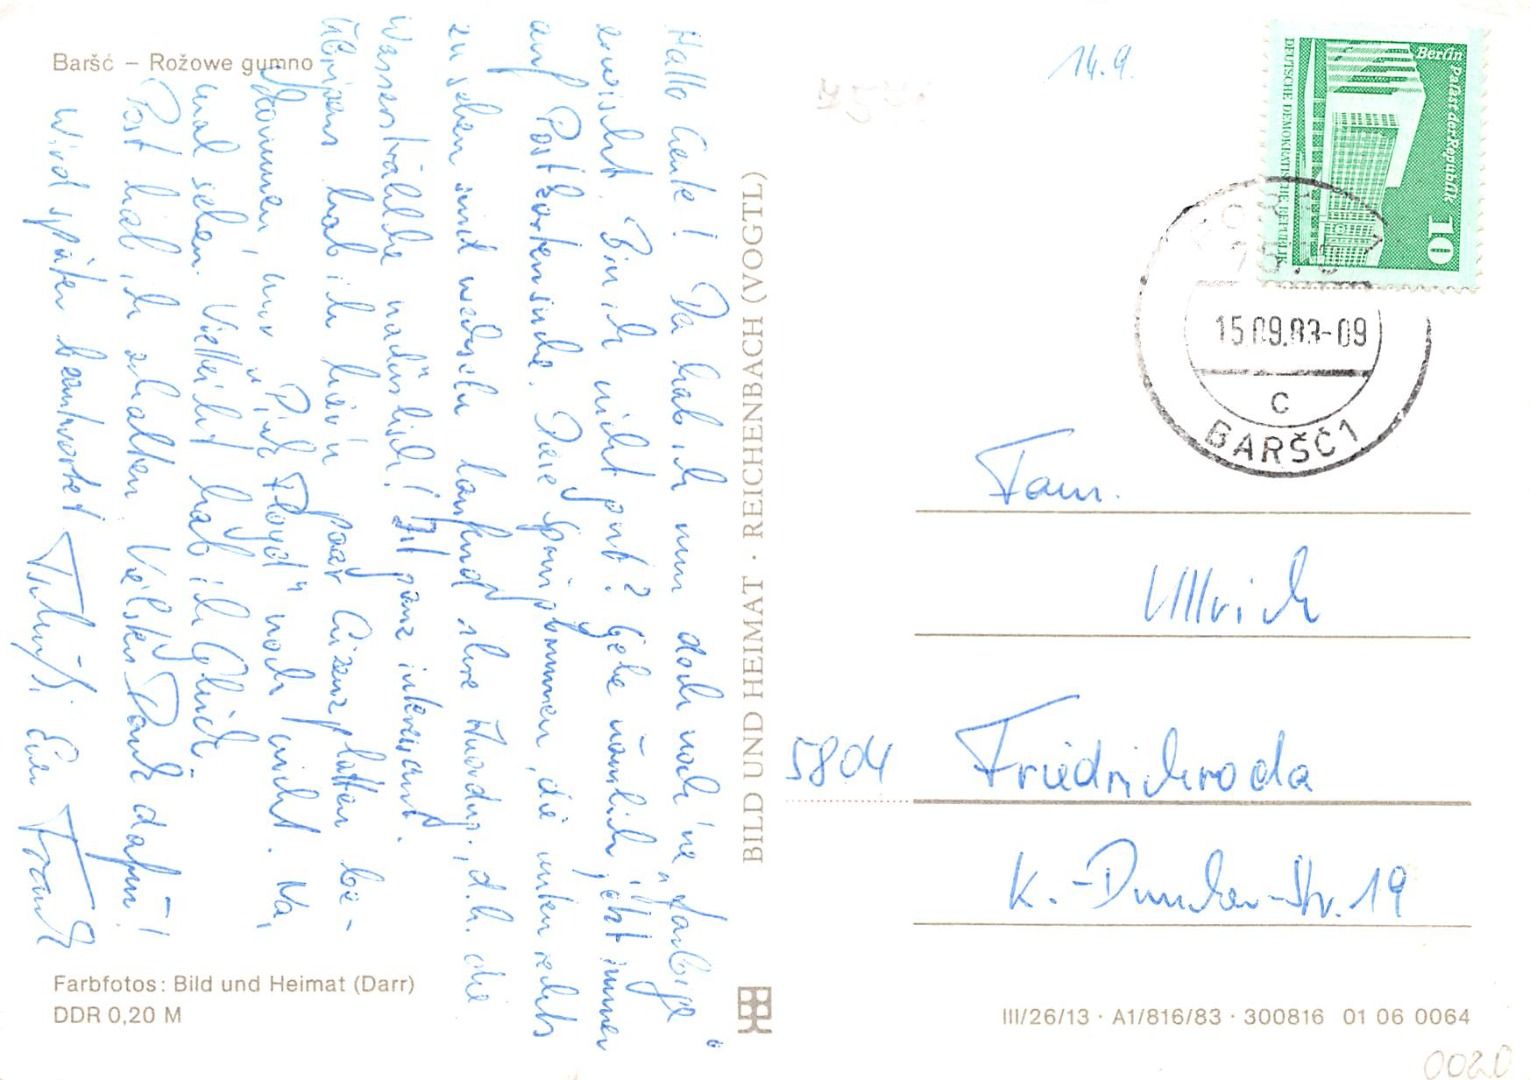 Baršć – Rožowe gumno
14.9.
Hallo Leute! Da hab ich nun doch noch 'ne „farbige“
erwischt. Bin ich nicht gut? Gehe nämlich jetzt immer
auf Postkartensuche. Diese Springbrunnen, die unten rechts
zu sehen sind wechseln laufend ihre Anordng., d.h. die
Wasserstrahlen natürlich! Ist ganz interessant.
Übrigens hab ich hier 'n paar Lizenzplatten be-
kommen, nur „Pink Floyd“ noch nicht. Na,
mal sehen. Vielleicht hab ich Glück.
Post hab ich erhalten. Vielen Dank dafür!
Wird später beantwortet Tschüß. Euer Frank
Farbfotos: Bild und Heimat (Darr)
DDR 0,20 M
BILD UND HEIMAT · REICHENBACH (VOGTL)
Berlin Palast der Republik
10
DEUTSCHE DEMOKRATISCHE REPUBLIK
15.09.83-09
c
BARŠĆ 1
Fam.
Ullrich
5804 Friedrichroda
K.-Duncker-Str. 19
III/26/13 · A1/816/83 · 300816 01 06 0064
0020